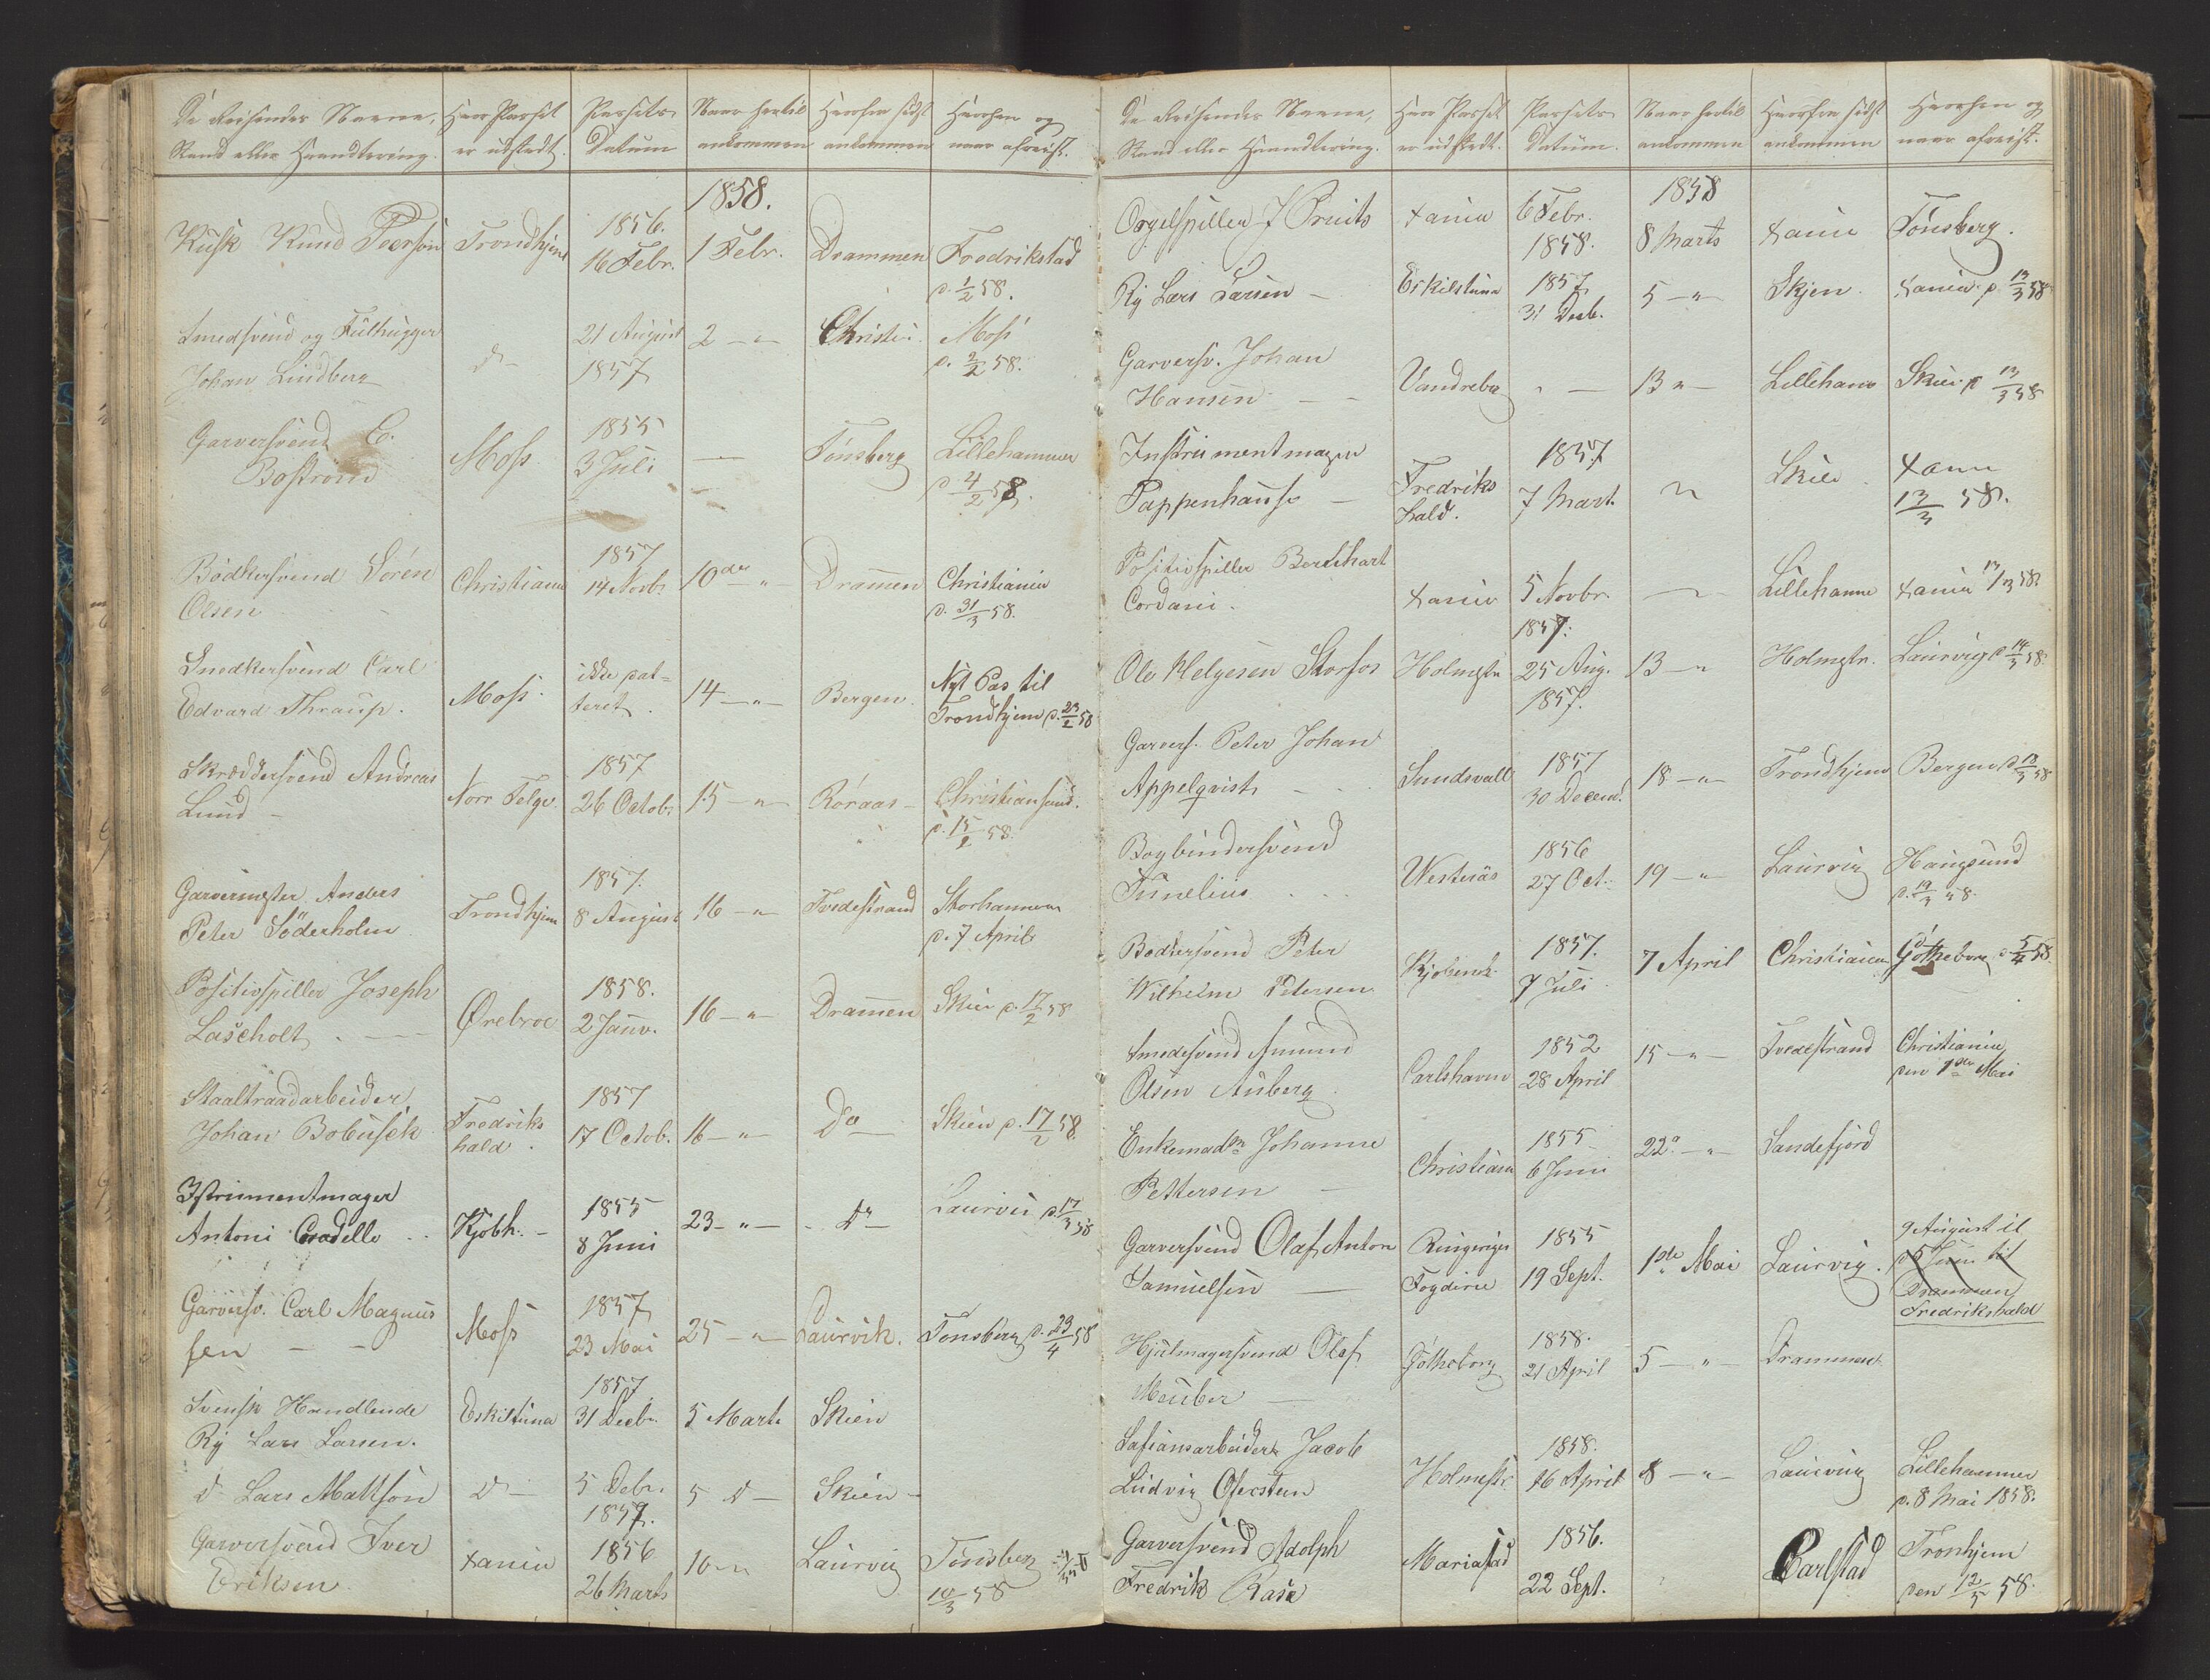 De Reisendes Navne, Hvor Passet Passets Naar hertil Hvorfra sidst Hvorhen og
Stand eller Haandtering. er udstedt. Datum ankommen ankommen naar afreist.
1858.
Kusk Knud Peerson Trondhjem 1856. 16 Febr. 1 Febr. Drammen Fredrikstad
d. 1/2 58.
Smedsvend og Fiilhugger 21 August 2 - " - Christi: Moss
Johan Lindberg d- 1857 d. 2/2 58.
Garversvend C. 1855 Tönsberg Lillehammer
Boström Moss 3 Juli d. 4/2 58.
Bödkersvend Sören Christiania 1857 14 Novb. 10de " Drammen Christiania
Olsen d. 31/3 58.
Snedkersvend Carl ikke dat= Nyt Pas til
Edvard Thraup. Moss teret. 14 - " - Bergen. Trondhjem d. 23/2 58
Skræddersvend Andreas 1857
Lund - Norr Telge 26 Octob. 15 - " - Röraas - Christiansund.
d. 15/2 58.
Garvermester Anders 1857.
Peter Söderholm Trondhjem 8 August 16 - " - Tvedestrand Storhammer
d. 7 April
Positivspiller Joseph 1858.
Lascholt Ørebroe 2 Janv. 16 - " - Drammen Skien d. 17/2 58
Staaltraadarbeider 1857
Johan Bobusek Fredriks 17 Octob. 16 - " - Do Skien d. 17/2 58.
hald.
Istrumentmager 1855
Antoni Cradello Kjöbh. - 8 Juni 23 - " - Do Laurvig d. 17/3 58
Garversv. Carl Magnus 1857
sen - - Moss 23 Mai 25 - " - Laurvik. Tönsberg d. 23/4 58
Svensk Handlende 1857
Rij Lars Larsen. Eskistuna 31 Decbr. 5 Marts Skien
d- Lars Mattson d- 5 Debr. 5 d- Skien -
1857.
Garversvend Iver 1856 Laurvig Tönsberg
Eriksen Xania 26 Marts 10 - " 10/3 58
De Reisendes Navne, Hvor Passet Passets Naar hertil Hvorfra sidst Hvorhen og
Stand eller Haandtering. er udstedt. Datum. ankommen ankommen naar afreist.
1858
Orgelspiller J Pruits Xania 6 Febr. 1858. 8 Marts Xania Tönsberg.
Rij Lars Larsen - Eskilstuna 1857 31 Decb. 5 - " - Skjen. Xania d. 13/3 58
Garversv. Johan
Hansen - - Vandrebog " - 13 " - Lillehamr Skien d 13/3 58
Instrumentmager 1857
Pappenhause - Fredriks 7 Mart. Skien Xania
hald. 13/3 58.
Positivspiller Bernhart
Cordani. Xania 5 Novbr. Lillehamr Xania 13/3 58.
1857.
Ole Helgesen Storfos Holmstr 25 Aug. 13 - " Holmstr. Laurvig d 14/3 58.
1857.
Garvers. Peter Johan
Appelqvist - - Sundsvall 1857 30 Decemb. 18 - " - Trondhjem Bergen d 18/3 58
Bogbindersvend 1856
Tunelius Westeräs 27 Oct. 19 - " - Laurvig Haugsund
d. 19/3 58.
Bödkersvend Peter 1857.
Wilhelm Petersen Kjöbenh. 7 Juli 7 April Christiania Götheborg d 5/4 58.
Smedesvend Amund 1852
Olsen Auberg. Carlshavn 28 April 15 - " - Tvedestrand Christiania
den 1de Mai
Enkemadm Johanne 1855
Pettersen - Christiania 6 Juni 22 - " - Sandefjord
Garversvend Olaf Anton Ringeriges 1855 9 August til
Samuelsen - Fogderie 19 Sept. 1ste Mai Laurvig. Drammen
Fredrikshald
Hjulmagersvend Olef 1858.
Meuber - Götheborg 21 April 5 - " - Drammen
Safiansarbeider Jacob 1858.
Ludvig Ofersteen Holmestr. 16 April 8 - " - Laurvig Lillehammer
d. 8 Mai 1858.
Garversvend Adolph 1856. Tronhjem
Fredrik Rase Mariastad 22 Sept. Carlstad den 12/5 58.